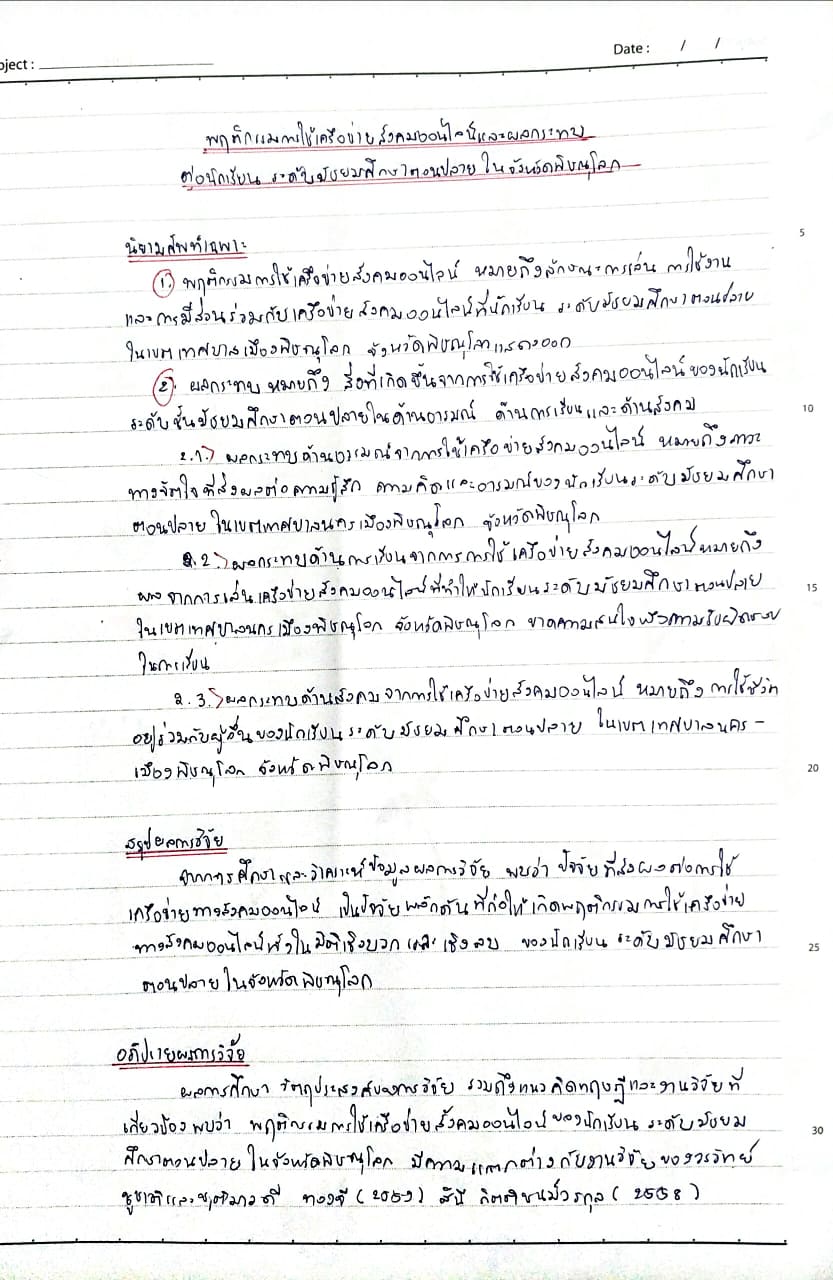 oject :
Date : / /
พฤติกรรมการใช้เครือข่ายสังคมออนไลน์และผลกระทบ
ต่อนักเรียน ระดับมัธยมศึกษาตอนปลาย ในจังหวัดพิษณุโลก
5
นิยามศัพท์เฉพาะ
1. พฤติกรรมการใช้เครือข่ายสังคมออนไลน์ หมายถึงลักษณะการเล่น การใช้งาน
และการมีส่วนร่วมกับเครือข่ายสังคมออนไลน์ที่นักเรียน ระดับมัธยมศึกษาตอนปลาย
ในเขตเทศบาลเมืองพิษณุโลก จังหวัดพิษณุโลกแสดงออก
2. ผลกระทบ หมายถึง สิ่งที่เกิดขึ้นจากการใช้เครือข่ายสังคมออนไลน์ของนักเรียน
10
ระดับชั้นมัธยมศึกษาตอนปลายในด้านอารมณ์ ด้านการเรียนและด้านสังคม
2.1.) ผลกระทบด้านอารมณ์จากการใช้เครือข่ายสังคมออนไลน์ หมายถึงภาวะ
ทางจิตใจที่ส่งผลต่อความรู้สึก ความคิดและอารมณ์ของนักเรียนระดับมัธยมศึกษา
ตอนปลาย ในเขตเทศบาลนครเมืองพิษณุโลก จังหวัดพิษณุโลก
2.2.) ผลกระทบด้านการเรียนจากการการใช้เครือข่ายสังคมออนไลน์หมายถึง
15
ผลจากการเล่นเครือข่ายสังคมออนไลน์ที่ทำให้นักเรียนระดับมัธยมศึกษาตอนปลาย
ในเขตเทศบาลนครเมืองพิษณุโลก จังหวัดพิษณุโลก ขาดความสนใจ ความรับผิดชอบ
ในการเรียน
2.3.) ผลกระทบด้านสังคมจากการใช้เครือข่ายสังคมออนไลน์ หมายถึง การใช้ชีวิต
อยู่ร่วมกับผู้อื่นของนักเรียนระดับมัธยมศึกษาตอนปลาย ในเขตเทศบาลนคร -
20
เมืองพิษณุโลก จังหวัดพิษณุโลก
สรุปผลการวิจัย
จากการศึกษาและวิเคราะห์ข้อมูลผลการวิจัย พบว่า ปัจจัยที่ส่งผลต่อการใช้
เครือข่ายทางสังคมออนไลน์ เป็นปัจจัยผลักดันที่ก่อให้เกิดพฤติกรรมการใช้เครือข่าย
25
ทางสังคมออนไลน์ทั้งในมิติเชิงบวก และ เชิงลบ ของนักเรียน ระดับมัธยมศึกษา
ตอนปลาย ในจังหวัดพิษณุโลก
อภิปรายผลการวิจัย
ผลการศึกษา วัตถุประสงค์ของการวิจัย รวมถึงแนวคิดทฤษฎีและงานวิจัยที่
30
เกี่ยวข้องพบว่า พฤติกรรมการใช้เครือข่ายสังคมออนไลน์ของนักเรียน ระดับมัธยม
ศึกษาตอนปลาย ในจังหวัดพิษณุโลก มีความแตกต่างกับงานวิจัยของวรวิทย์
ชูชาติและ ทองจี (2559)